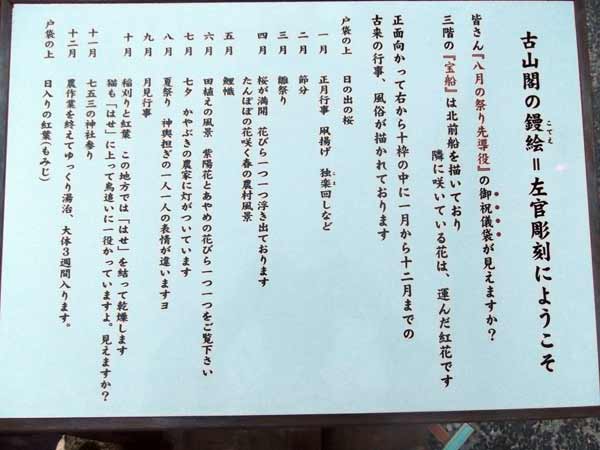 古山閣の鏝絵=左官彫刻にようこそ
こてえ
皆さん『八月の祭り先導役』の御祝儀袋が見えますか？
三階の『宝船』は北前船を描いており
隣に咲いている花は、運んだ紅花です
正面向かって右から十枠の中に一月から十二月までの
古来の行事、風俗が描かれております
戸袋の上　日の出の桜
一月　正月行事　凧揚げ　独楽回しなど
こま
二月　節分
三月　雛祭り
四月　桜が満開　花びら一つ一つ浮き出ております
たんぽぽの花咲く春の農村風景
五月　鯉幟
六月　田植えの風景　紫陽花とあやめの花びら一つ一つをご覧下さい
七月　七夕　かやぶきの農家に灯がついています
八月　夏祭り　神輿担ぎの一人一人の表情が違いますヨ
九月　月見行事
十月　稲刈りと紅葉　この地方では「はせ」を結って乾燥します
猫も「はせ」に上って鳥追いに一役かっていますよ。見えますか？
十一月　七五三の神社参り
十二月　農作業を終えてゆっくり湯治、大体３週間入ります。
戸袋の上　日入りの紅葉(もみじ)